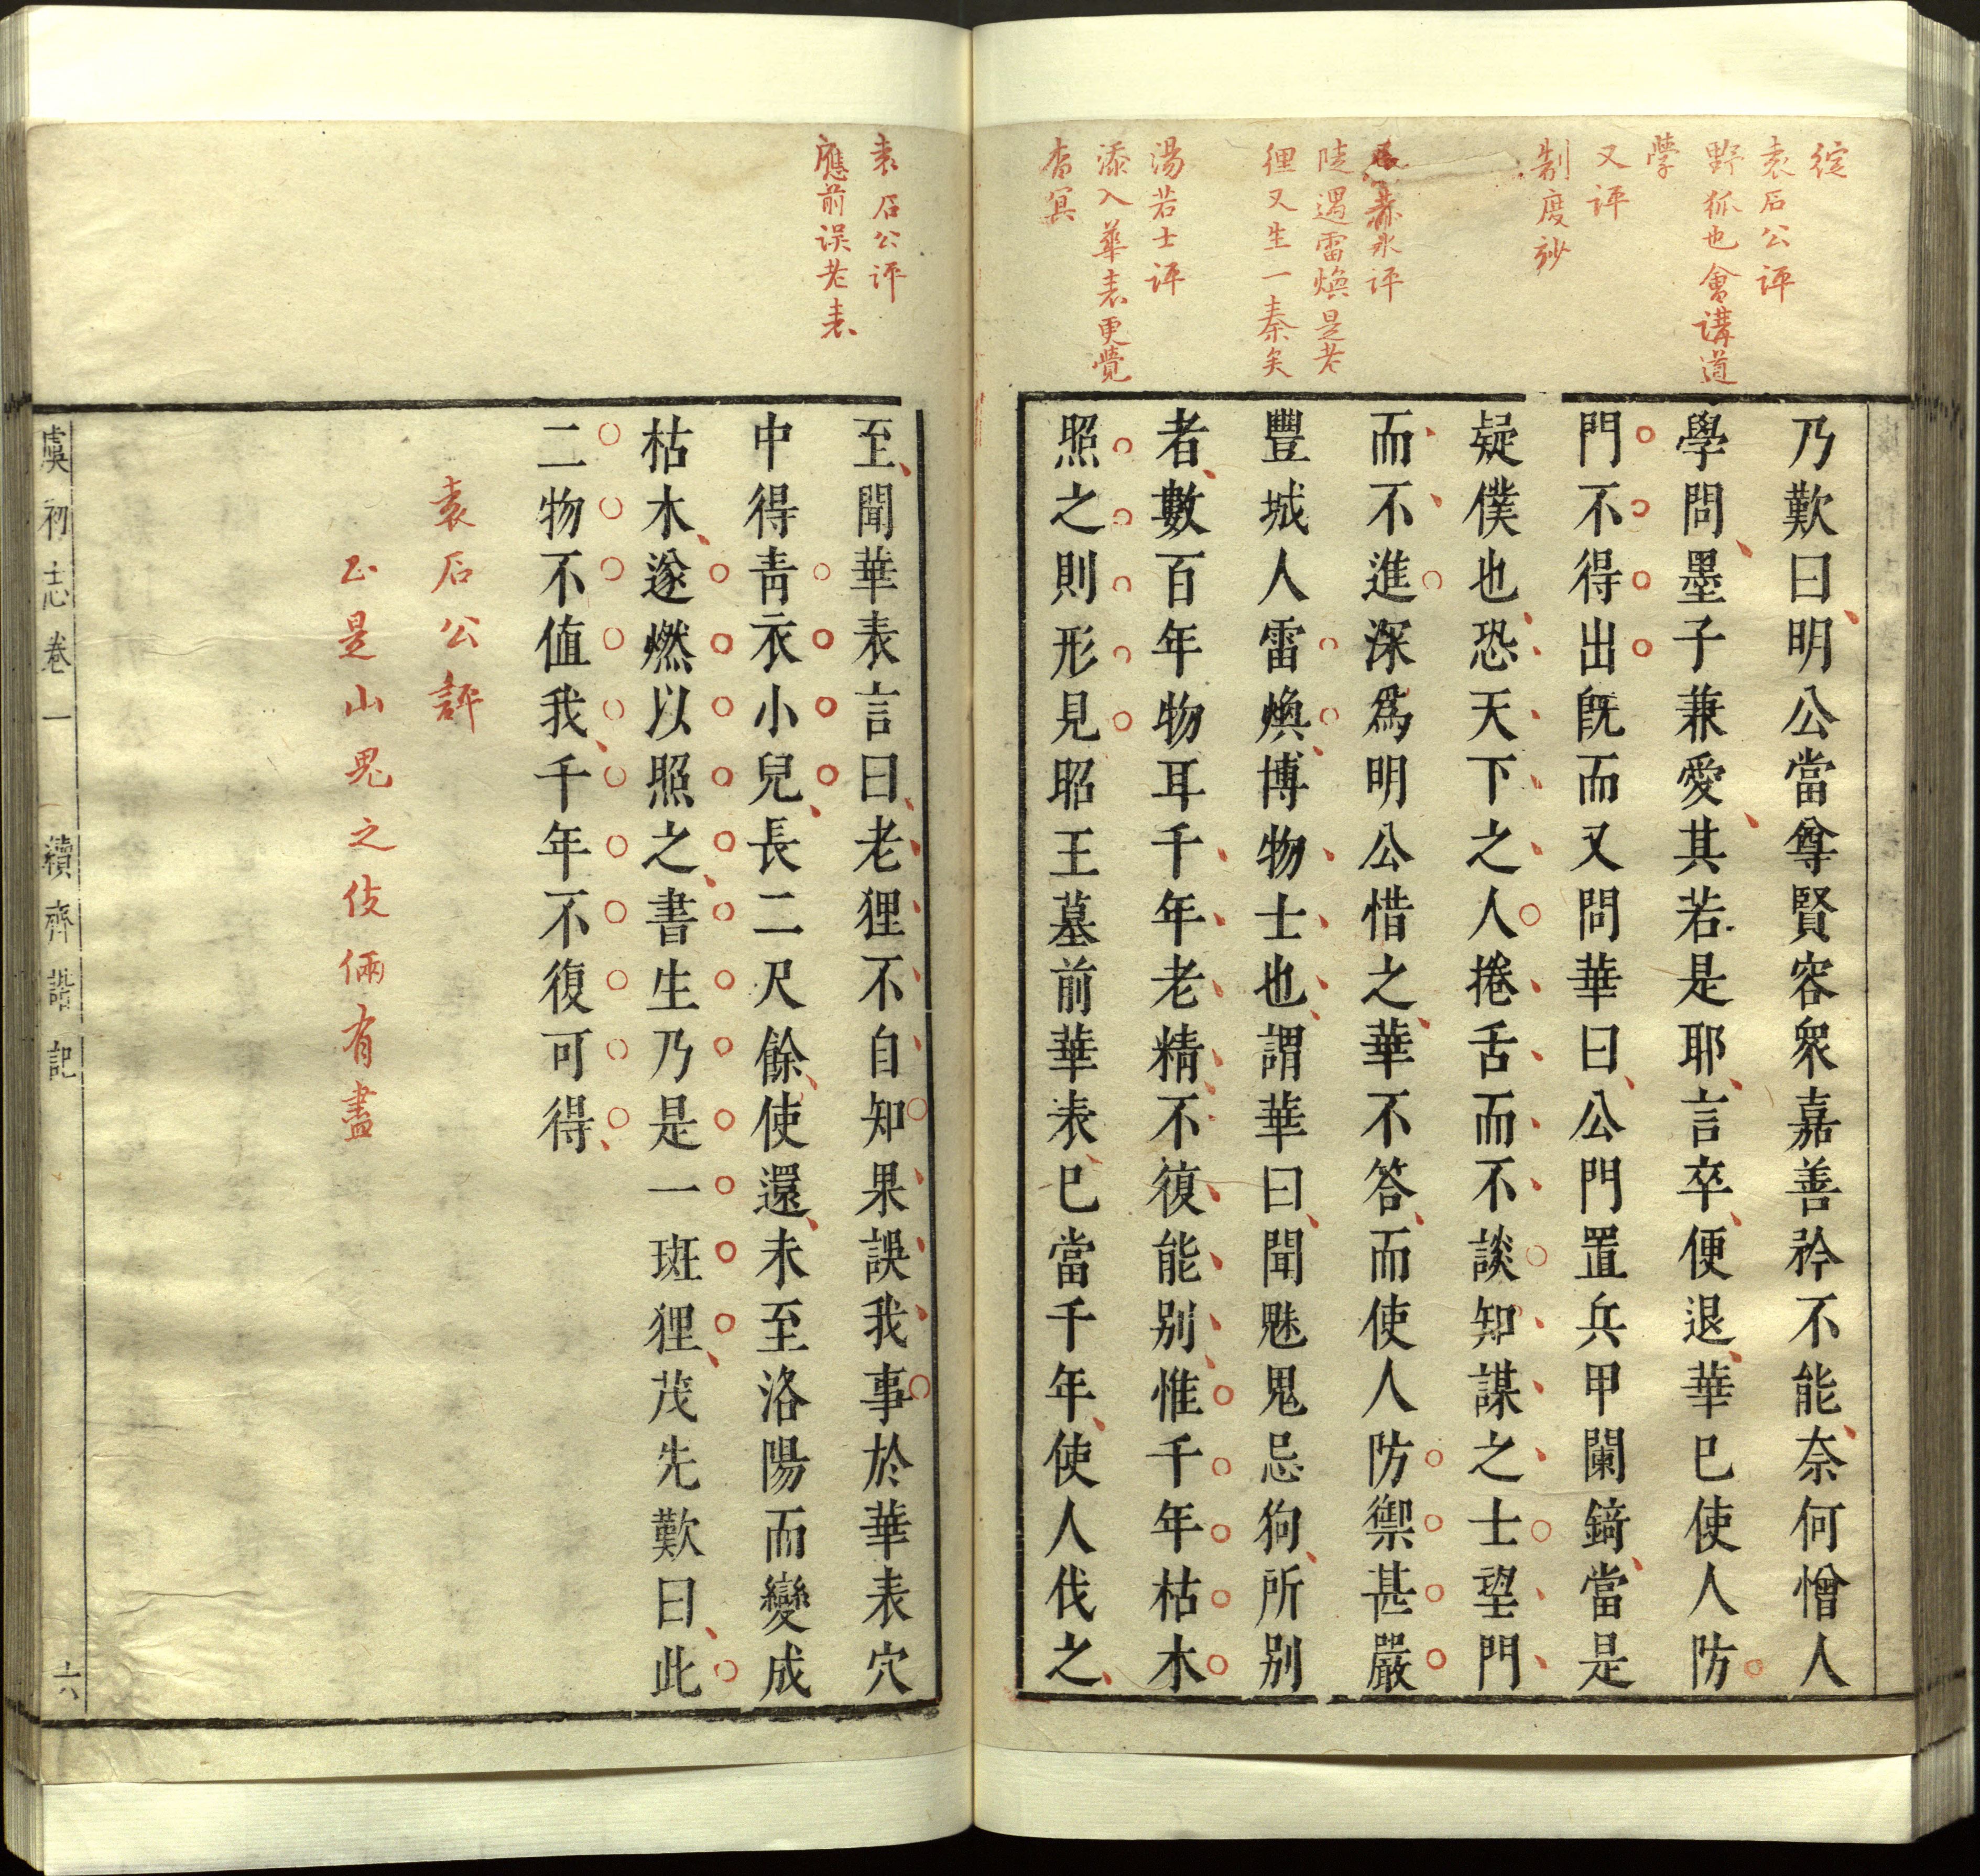 綻
袁石公評
野狐也會講道
學
又評
制度妙
赤水評
陡遇雷煥是老
狸又生一秦矣
湯若士評
添入華表更覺
杳冥
乃歎曰明公當尊賢容衆嘉善矜不能奈何憎人
學問墨子兼愛其若是耶言卒便退華已使人防
門不得出旣而又問華曰公門置兵甲闌錡當是
疑僕也恐天下之人捲舌而不談知謀之士望門
而不進深爲明公惜之華不答而使人防禦甚嚴
豐城人雷煥博物士也謂華曰聞魅鬼忌狗所别
者數百年物耳千年老精不復能别惟千年枯木
照之則形見昭王墓前華表已當千年使人伐之
袁石公評
應前誤老表
至聞華表言曰老狸不自知果誤我事於華表穴
中得靑衣小兒長二尺餘使還未至洛陽而變成
枯木遂燃以照之書生乃是一斑狸茂先歎曰此
二物不值我千年不復可得
袁石公評
正是山鬼之伎倆有盡
虞初志卷一
續齊諧記
六